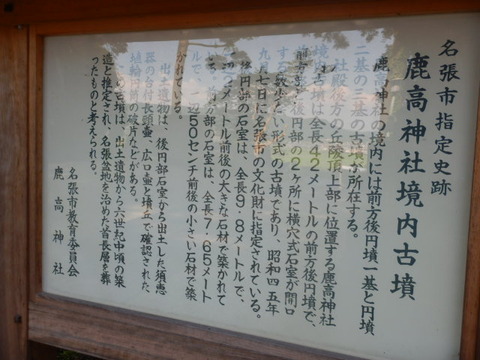 名張市指定史跡
鹿高神社境内古墳
鹿高神社の境内には前方後円墳一基と円墳
二基の三基の古墳が所在する。
社殿後方の丘陵頂上部に位置する鹿高神社
境内古墳は全長42メートルの前方後円墳で、
前方部と後円部の2ヶ所に横穴式石室が開口
する数少ない形式の古墳であり、昭和四五年
九月七日に名張市の文化財に指定されている。
後円部の石室は、全長9・8メートルで、
メートル前後の大きな石材で築かれて
前方部の石室は、全長7・65メート
ルで、一辺50センチ前後の小さい石材で築
かれている。
出土遺物は、後円部石室から出土した須恵
器の台付長頸壷、広口壷と墳丘で確認された
埴輪円筒の破片などがある。
この古墳は、出土遺物から六世紀中頃の築
造と推定され、名張盆地を治めた首長層を葬
ったものと考えられる。
名張市教育委員会
鹿高神社